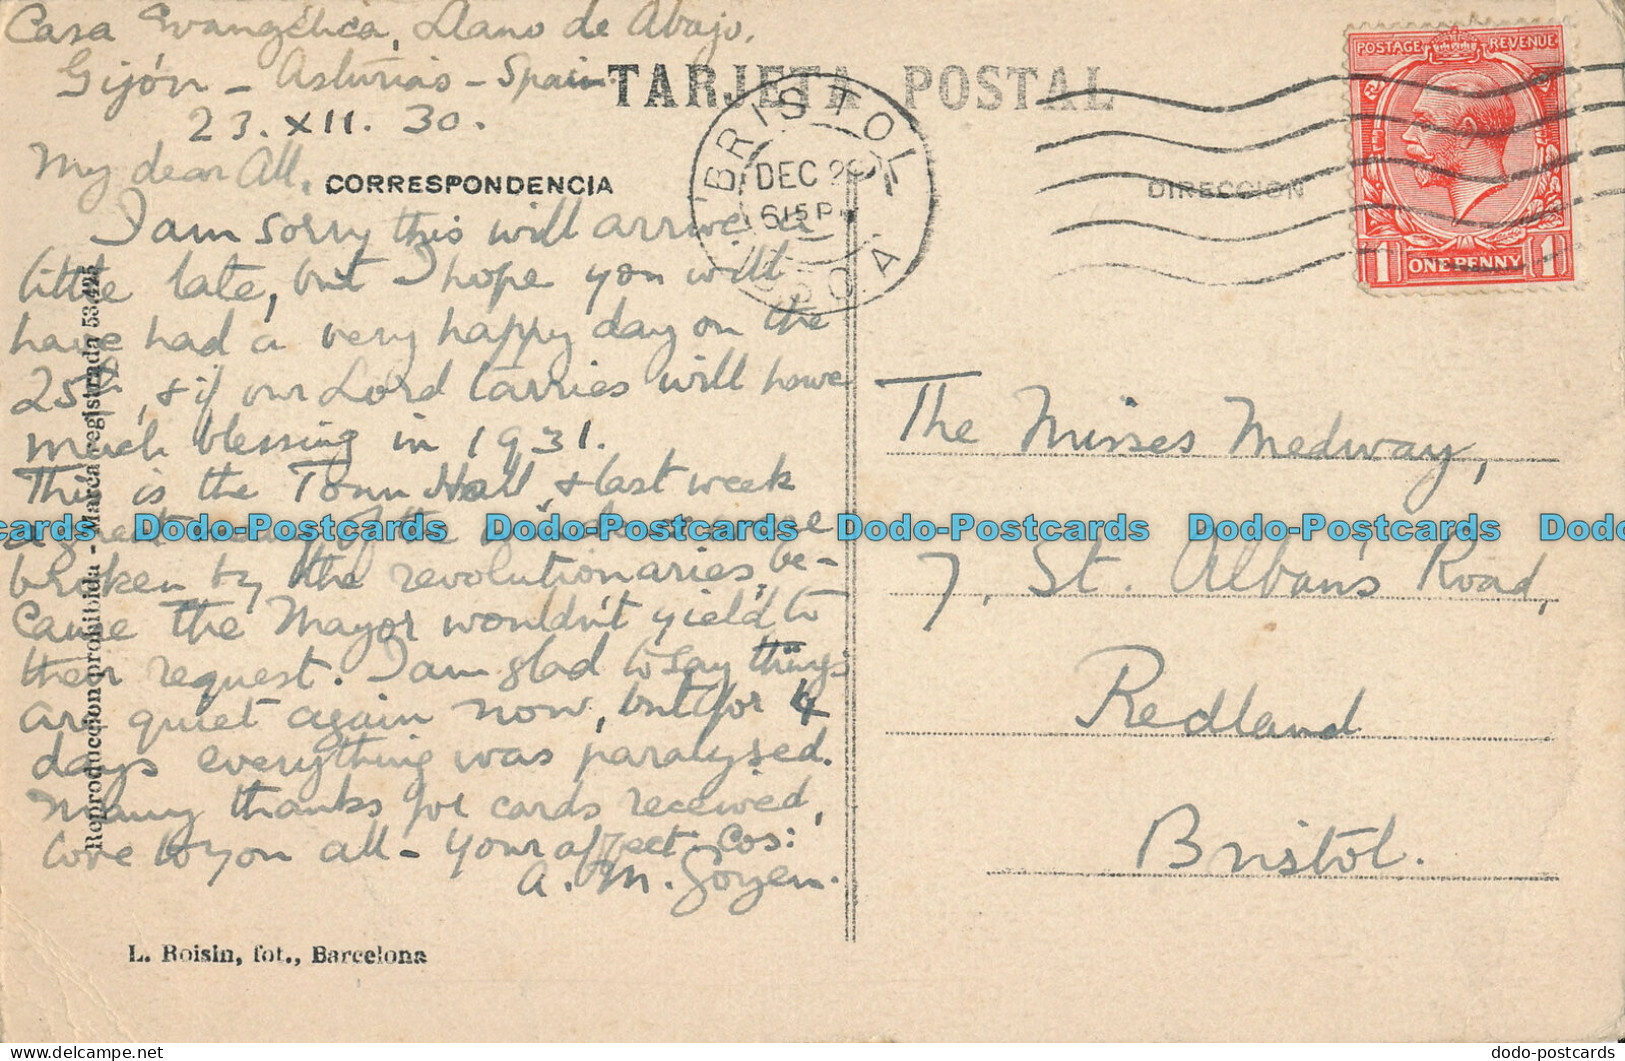 Casa Evangélica, Llano de Abajo,
Gijón - Asturias - Spain.
23. XII. 30.
TARJETA POSTAL
My dear All,
CORRESPONDENCIA
I am sorry this will arrive a
little late, but I hope you will
have had a very happy day on the
25th, & if our Lord tarries will have
much blessing in 1931.
This is the Town Hall, & last week
a great many of the windows were
broken by the revolutionaries, be-
cause the Mayor wouldn't yield to
their request. I am glad to say things
are quiet again now, but for 4
days everything was paralysed.
Many thanks for cards received,
love to you all - your affect. cos:
A. M.
L. Roisin, fot., Barcelona
Reproduccion prohibida - Marca registrada 53.425
BRISTOL
DEC 2
615 P
DIRECCION
POSTAGE REVENUE
1 ONE PENNY 1
The Misses Medway,
7, St. Alban's Road,
Redland
Bristol.
cards Dodo-Postcards Dodo-Postcards Dodo-Postcards Dodo-Postcards Dodo
dodo-postcards